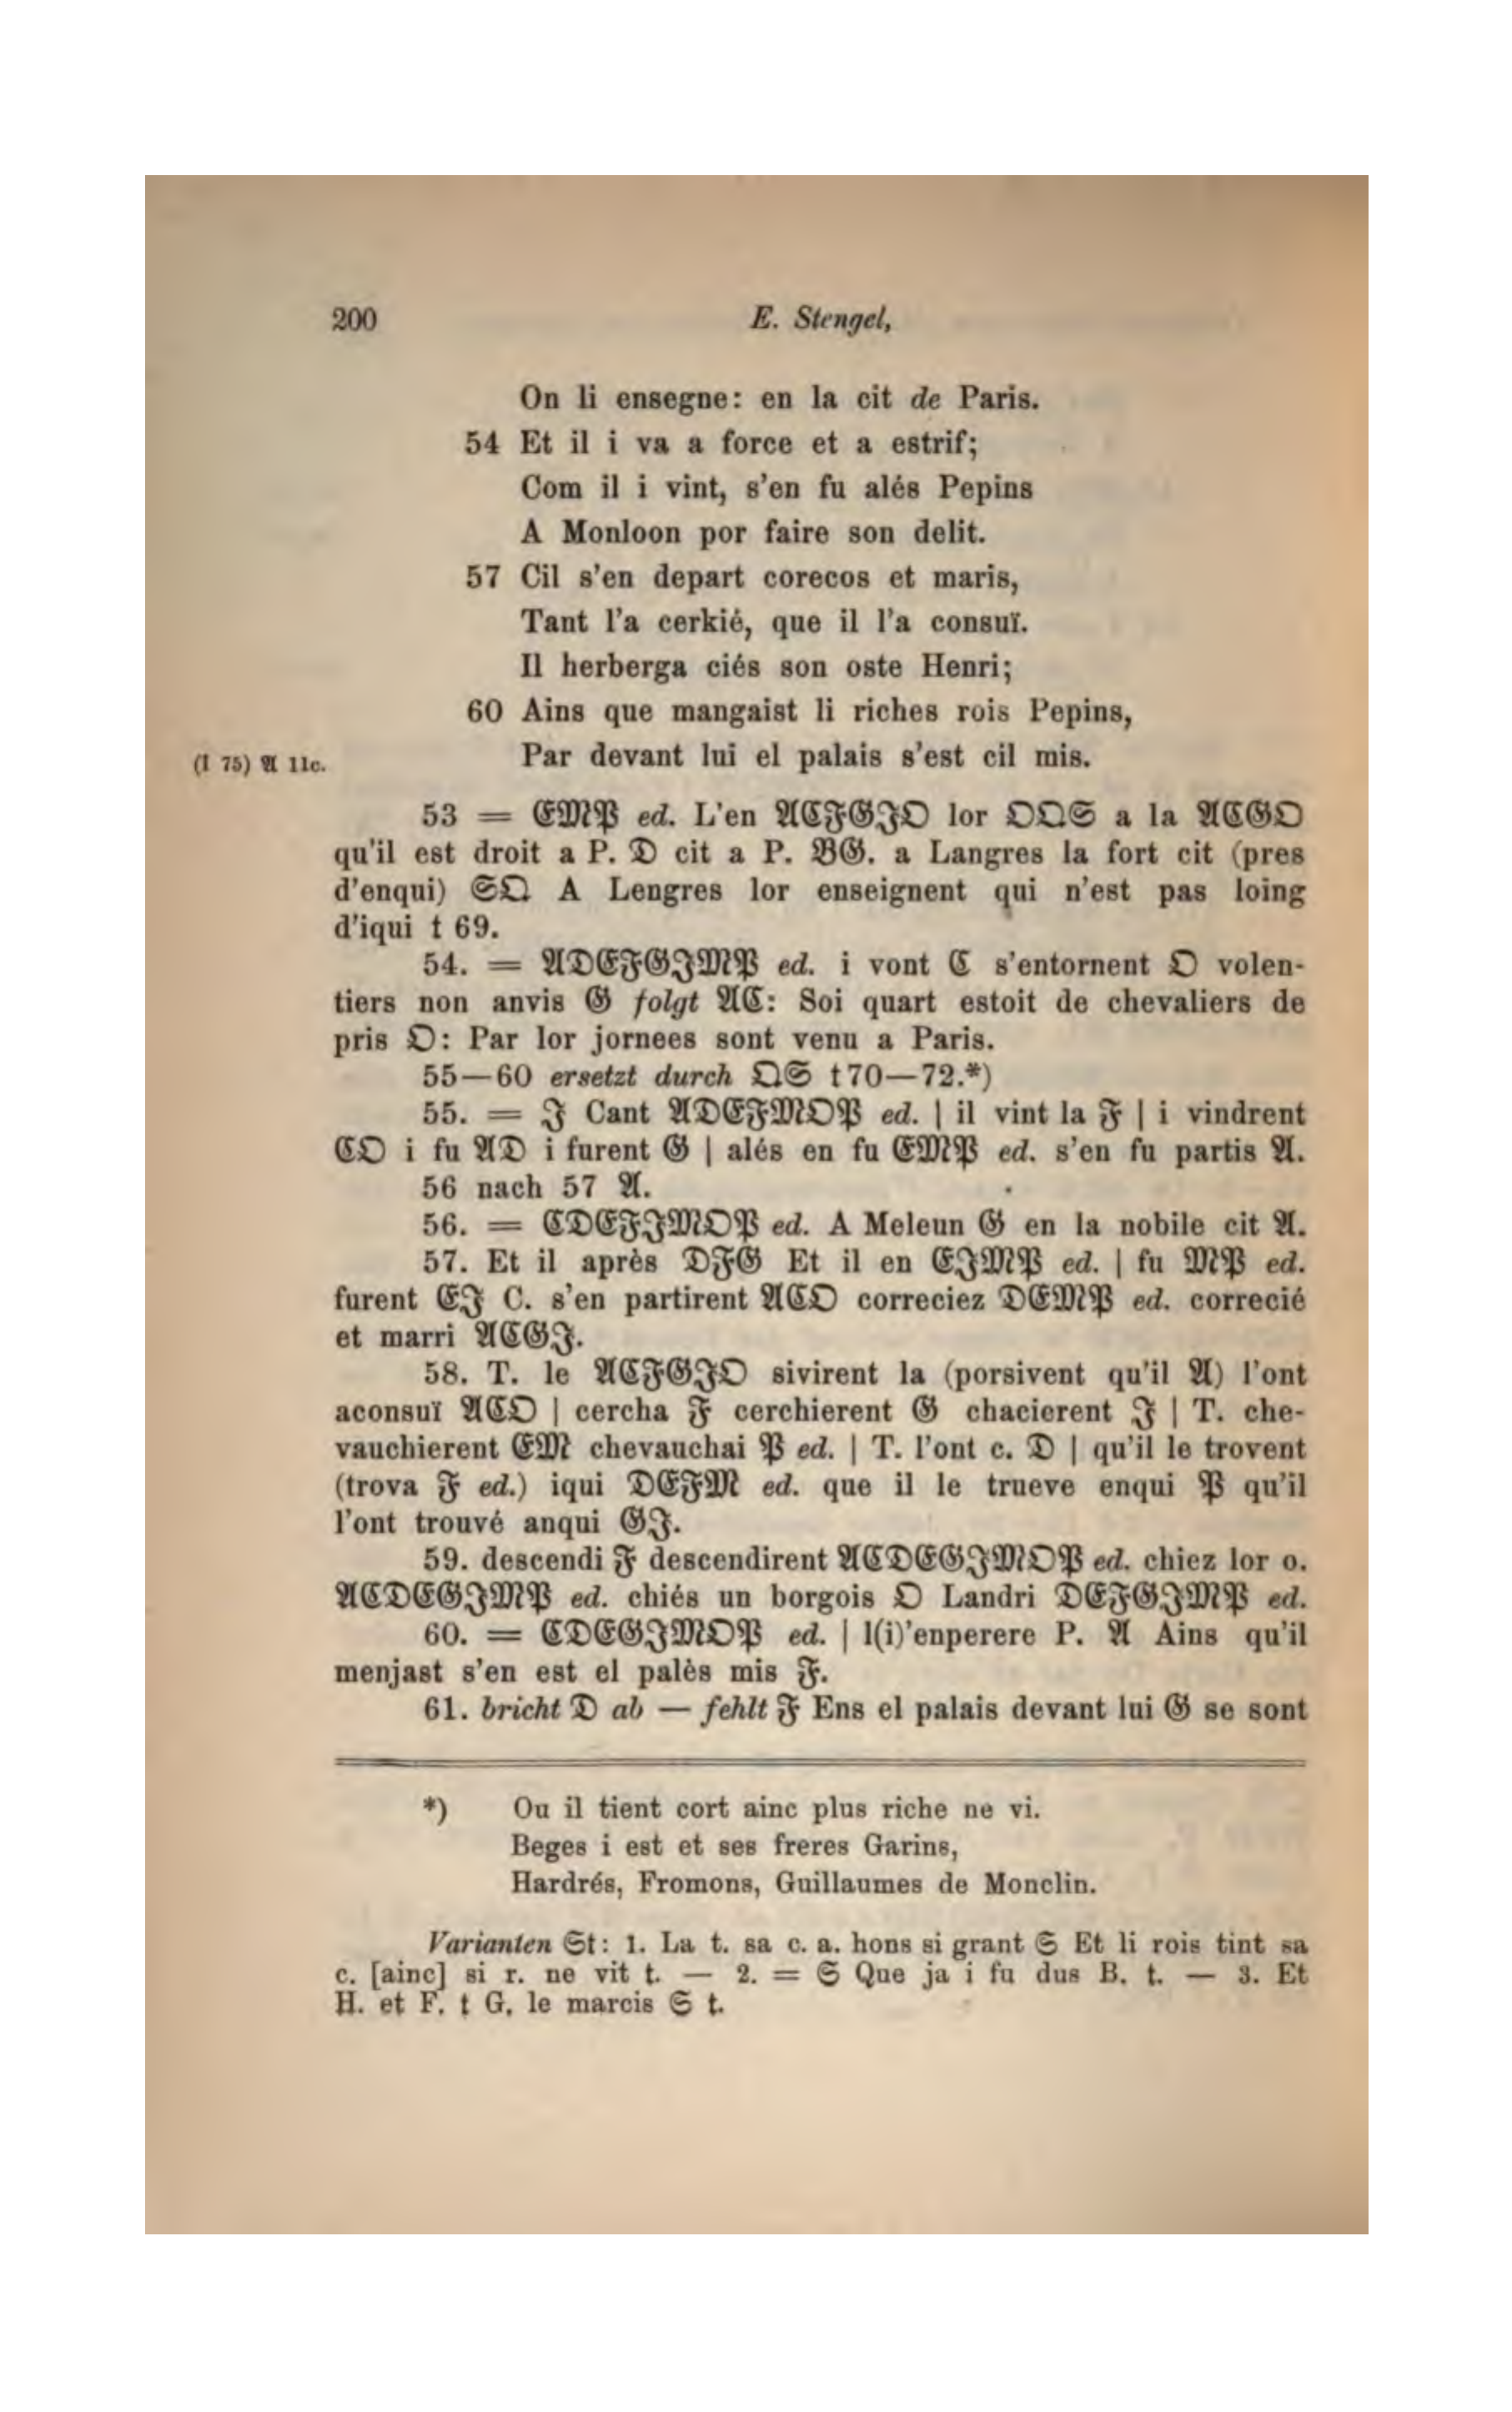 200 E. Stengel,
On li ensegne: en la cit de Paris.
54 Et il i va a force et a estrif;
Com il i vint, s'en fu alés Pepins
A Monloon por faire son delit.
57 Cil s'en depart corecos et maris,
Tant l'a cerkié, que il l'a consuï.
Il herberga ciés son oste Henri;
60 Ains que mangaist li riches rois Pepins,
(I 75) 𝔄 11c. Par devant lui el palais s'est cil mis.
53 = 𝔈𝔐𝔓 ed. L'en 𝔄ℭ𝔉𝔊𝔍𝔒 lor 𝔒𝔔𝔖 a la 𝔄ℭ𝔊𝔒
qu'il est droit a P. 𝔇 cit a P. 𝔅𝔊. a Langres la fort cit (pres
d'enqui) 𝔖𝔔 A Lengres lor enseignent qui n'est pas loing
d'iqui t 69.
54. = 𝔄𝔇𝔈𝔉𝔊𝔍𝔐𝔓 ed. i vont ℭ s'entornent 𝔒 volen-
tiers non anvis 𝔊 folgt 𝔄ℭ: Soi quart estoit de chevaliers de
pris 𝔒: Par lor jornees sont venu a Paris.
55—60 ersetzt durch 𝔔𝔖 t70—72.*)
55. = 𝔍 Cant 𝔄𝔇𝔈𝔉𝔐𝔒𝔓 ed. | il vint la 𝔉 | i vindrent
ℭ𝔒 i fu 𝔄𝔇 i furent 𝔊 | alés en fu 𝔈𝔐𝔓 ed. s'en fu partis 𝔄.
56 nach 57 𝔄.
56. = ℭ𝔇𝔈𝔉𝔍𝔐𝔒𝔓 ed. A Meleun 𝔊 en la nobile cit 𝔄.
57. Et il après 𝔇𝔉𝔊 Et il en 𝔈𝔍𝔐𝔓 ed. | fu 𝔐𝔓 ed.
furent 𝔈𝔍 C. s'en partirent 𝔄ℭ𝔒 correciez 𝔇𝔈𝔐𝔓 ed. correcié
et marri 𝔄ℭ𝔊𝔍.
58. T. le 𝔄ℭ𝔉𝔊𝔍𝔒 sivirent la (porsivent qu'il 𝔄) l'ont
aconsuï 𝔄ℭ𝔒 | cercha 𝔉 cerchierent 𝔊 chacierent 𝔍 | T. che-
vauchierent 𝔈𝔐 chevauchai 𝔓 ed. | T. l'ont c. 𝔇 | qu'il le trovent
(trova 𝔉 ed.) iqui 𝔇𝔈𝔉𝔐 ed. que il le trueve enqui 𝔓 qu'il
l'ont trouvé anqui 𝔊𝔍.
59. descendi 𝔉 descendirent 𝔄ℭ𝔇𝔈𝔊𝔍𝔐𝔒𝔓 ed. chiez lor o.
𝔄ℭ𝔇𝔈𝔊𝔍𝔐𝔓 ed. chiés un borgois 𝔒 Landri 𝔇𝔈𝔉𝔊𝔍𝔐𝔓 ed.
60. = ℭ𝔇𝔈𝔊𝔍𝔐𝔒𝔓 ed. | l(i)'enperere P. 𝔄 Ains qu'il
menjast s'en est el palès mis 𝔉.
61. bricht 𝔇 ab — fehlt 𝔉 Ens el palais devant lui 𝔊 se sont
*) Ou il tient cort ainc plus riche ne vi.
Beges i est et ses freres Garins,
Hardrés, Fromons, Guillaumes de Monclin.
Varianten 𝔖t: 1. La t. sa c. a. hons si grant 𝔖 Et li rois tint sa
c. [ainc] si r. ne vit t. — 2. = 𝔖 Que ja i fu dus B. t. — 3. Et
H. et F. t G. le marcis 𝔖 t.